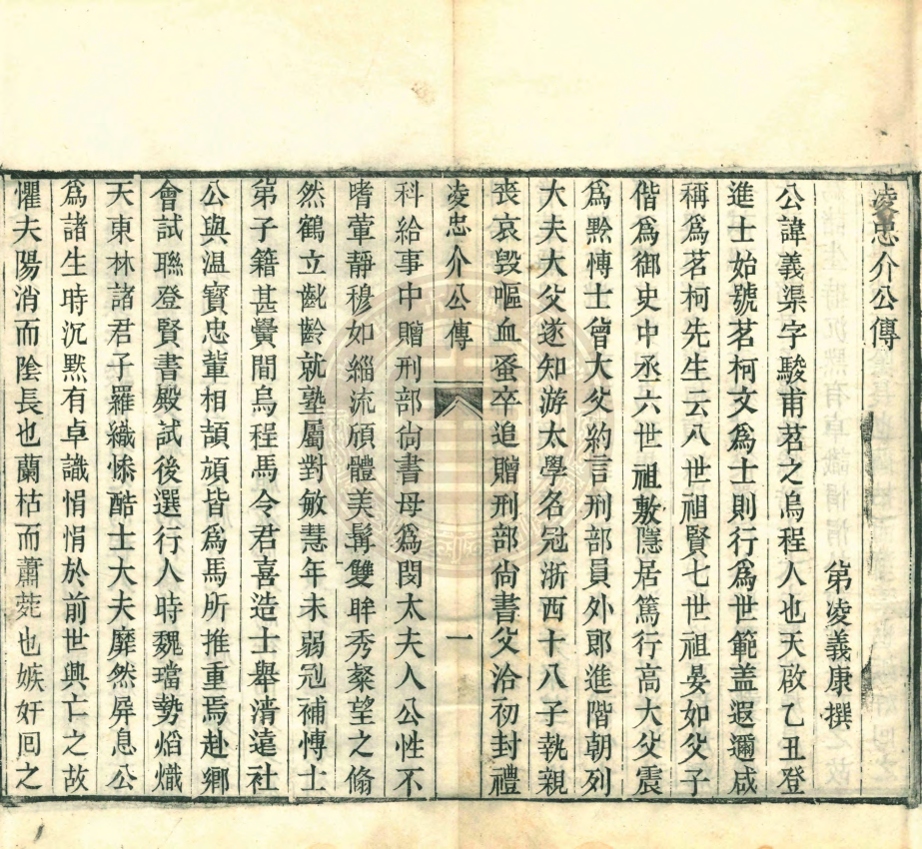 凌忠介公傳
弟凌義康撰
公諱義渠字駿甫茗之烏程人也天啟乙丑登
進士始號茗柯文爲士則行爲世範盖遐邇咸
稱爲茗柯先生云八世祖賢七世祖晏如父子
偕爲御史中丞六世祖敷隱居篤行高大父震
爲黔愽士曾大父約言刑部員外郎進階朝列
大夫大父遂知游太學名冠浙西十八子執親
喪哀毀嘔血蚤卒追贈刑部尙書父洽初封禮
凌忠介公傳 一
科給事中贈刑部尙書母爲閔太夫人公性不
嗜葷靜穆如緇流頎體美髯雙眸秀粲望之翛
然鶴立齔齡就塾屬對敏慧年未弱冠補愽士
弟子籍甚黌間烏程馬令君喜造士舉清遠社
公與温寳忠軰相頡頏皆爲馬所推重焉赴鄉
會試聯登賢書殿試後選行人時魏璫勢焰熾
天東林諸君子羅織慘酷士大夫靡然屏息公
爲諸生時沉黙有卓識悁悁於前世興亡之故
懼夫陽消而陰長也蘭枯而蕭菀也嫉奸回之